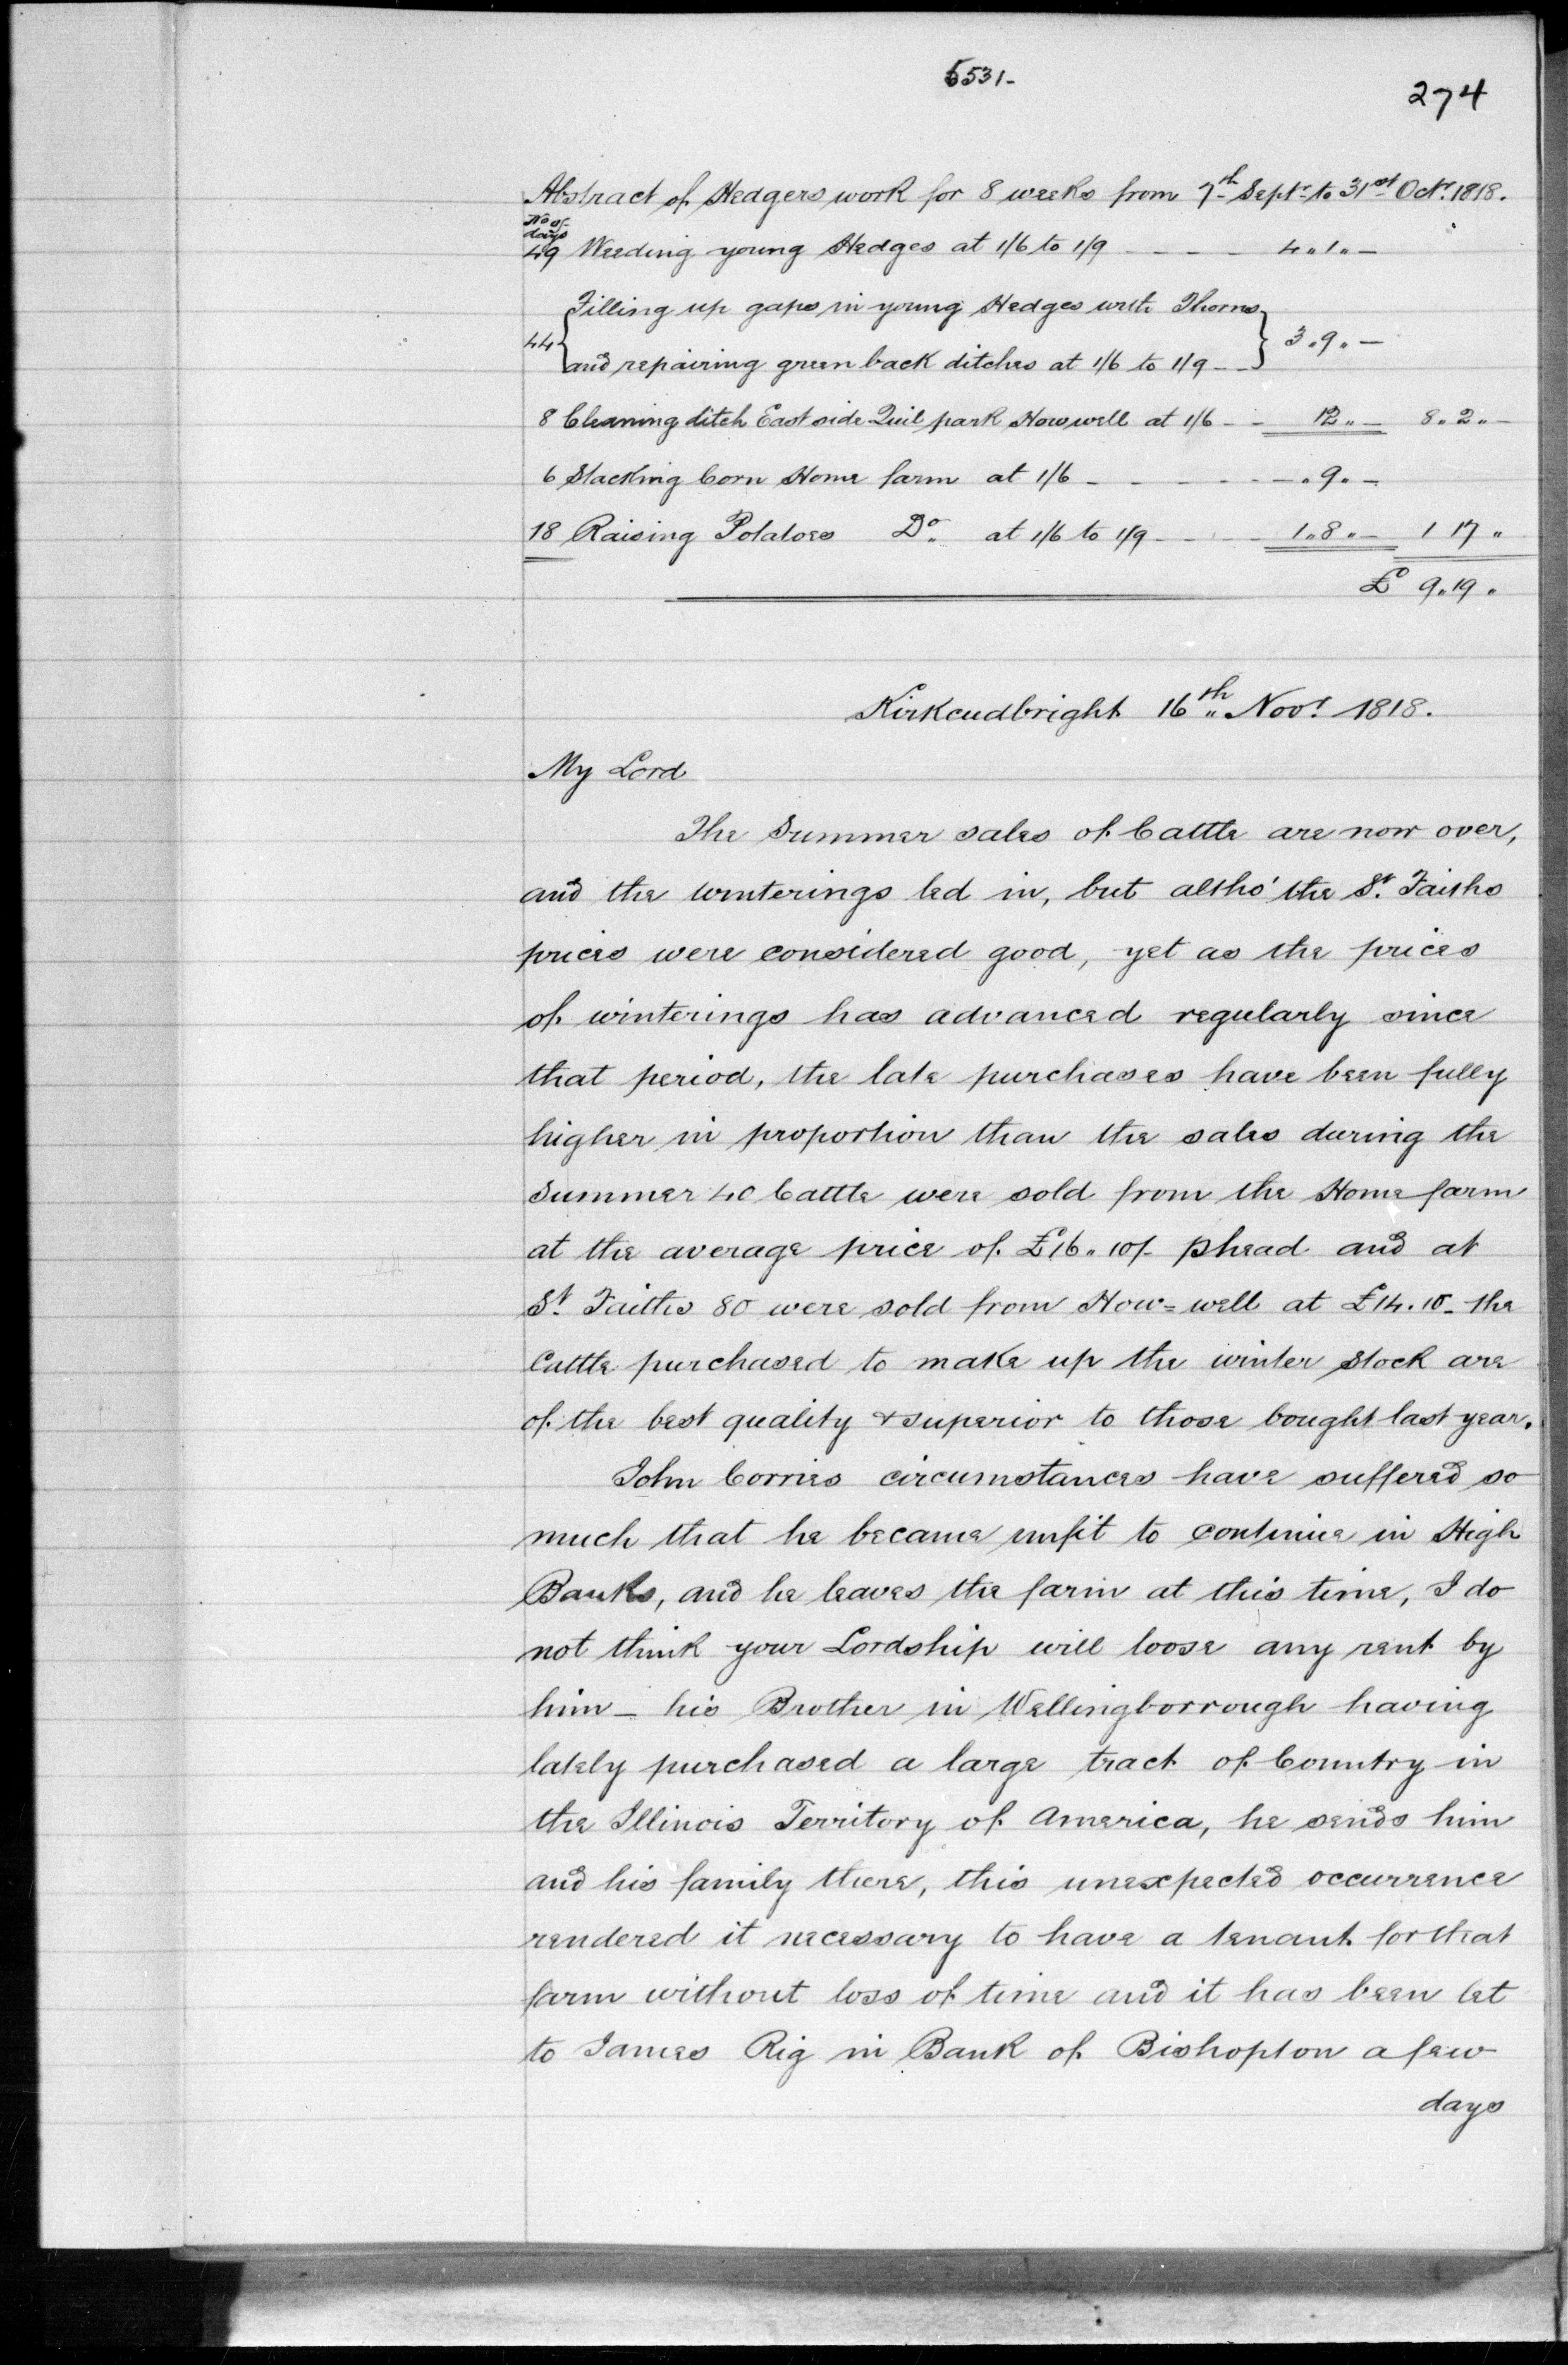 5531-
274
Abstract of Hedgers work for 8 weeks from 7th Septr to 31st Octr. 1818.
No of
days
49 Weeding young Hedges at 1/6 to 1/9 - - - - 4 " 1 " -
Filling up gaps in young Hedges with Thorns
44 3 " 9 " -
and repairing green back ditches at 1/6 to 1/9 - -
8 Cleaning ditch East side Quil park Howwell at 1/6 - - 12 " - 8 " 2 " -
6 Stacking Corn Home farm at 1/6 - - - - - - - " 9 " -
18 Raising Potatoes Do. at 1/6 to 1/9 - - - - 1 " 8 " - 1 17 "
£ 9 " 19 "
Kirkcudbright 16th " Novr 1818.
My Lord
The Summer sales of Cattle are now over,
and the winterings led in, but altho' the St. Faiths
prices were considered good, yet as the prices
of winterings has advanced regularly since
that period, the late purchases have been fully
higher in proportion than the sales during the
Summer 40 Cattle were sold from the Home farm
at the average price of £16 " 10/- phead and at
St Faiths 80 were sold from How=well at £14. 10 - the
Cattle purchased to make up the winter Stock are
of the best quality & superior to those bought last year.
John Corries circumstances have suffered so
much that he became unfit to continue in High
Banks, and he leaves the farm at this time, I do
not think your Lordship will loose any rent by
him - his Brother in Wellingborrough having
lately purchased a large tract of Country in
the Illinois Territory of America, he sends him
and his family there, this unexpected occurrence
rendered it necessary to have a tenant for that
farm without loss of time and it has been let
to James Rig in Bank of Bishopton a few
days